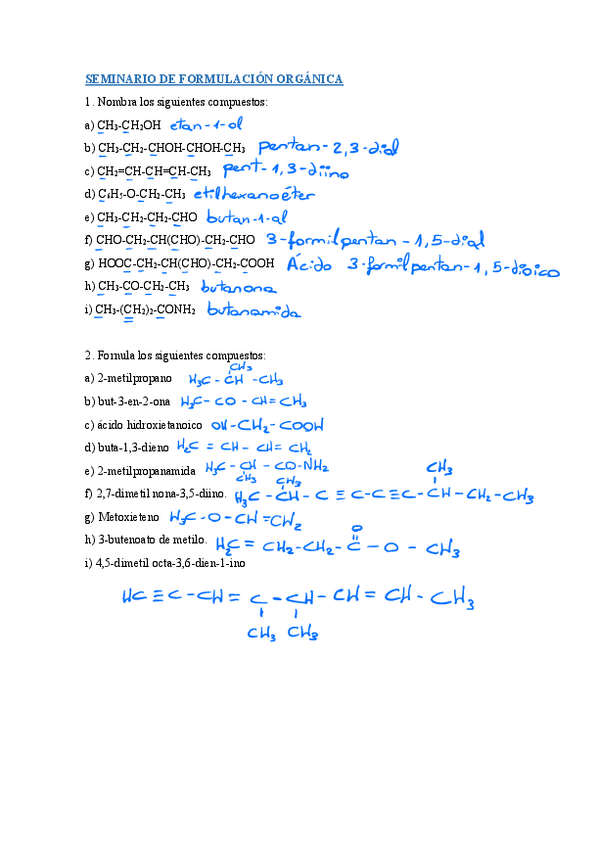 SEMINARIO DE FORMULACIÓN ORGÁNICA
1. Nombra los siguientes compuestos:
a) CH3-CH2OH etan-1-ol
b) CH3-CH2-CHOH-CHOH-CH3 pentan-2,3-diol
c) CH2=CH-CH=CH-CH3 pent-1,3-diino
d) C6H5-O-CH2-CH3 etilhexanoéter
e) CH3-CH2-CH2-CHO butan-1-al
f) CHO-CH2-CH(CHO)-CH2-CHO 3-formilpentan-1,5-dial
g) HOOC-CH2-CH(CHO)-CH2-COOH Ácido 3-formilpentan-1,5-dioico
h) CH3-CO-CH2-CH3 butanona
i) CH3-(CH2)2-CONH2 butanamida
2. Formula los siguientes compuestos:
CH3
a) 2-metilpropano H3C-CH-CH3
b) but-3-en-2-ona H3C-CO-CH=CH3
c) ácido hidroxietanoico OH-CH2-COOH
d) buta-1,3-dieno H2C=CH-CH=CH2
e) 2-metilpropanamida H3C-CH-CO-NH2
CH3 CH3 CH3
f) 2,7-dimetil nona-3,5-diino. H3C-CH-C≡C-C≡C-CH-CH2-CH3
g) Metoxieteno H3C-O-CH=CH2
O
h) 3-butenoato de metilo. H2C=CH2-CH2-C-O-CH3
i) 4,5-dimetil octa-3,6-dien-1-ino
HC≡C-CH=C-CH-CH=CH-CH3
CH3 CH3